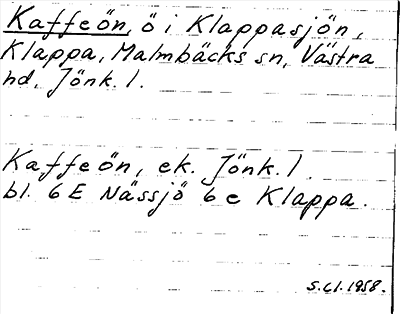 Kaffeön, ö i Klappasjön,
Klappa, Malmbäcks sn, Västra
hd, Jönk. l.
Kaffeön, ek. Jönk. l.
bl. 6 E Nässjö 6 e Klappa.
1958.